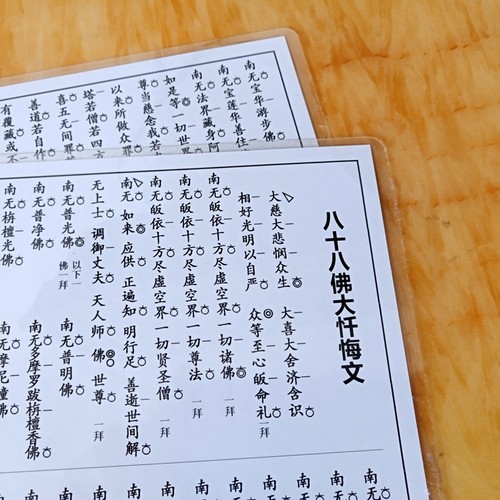 八十八佛大忏悔文
大慈大悲悯众生 大喜大舍济含识
相好光明以自严 众等至心皈命礼 一拜
南无皈依十方尽虚空界一切诸佛 一拜
南无皈依十方尽虚空界一切尊法 一拜
南无皈依十方尽虚空界一切贤圣僧 一拜
南无如来 应供 正遍知 明行足 善逝世间解
无上士 调御丈夫 天人师 佛 世尊 一拜
南无普光佛 以下一佛一拜 南无普明佛
南无普净佛 南无多摩罗跋栴檀香佛
南无栴檀光佛 南无摩尼幢佛
南无
南无
南无
南无
南
南
南
南
南无宝华游步佛
南无宝莲华善住
南无法界藏身阿
如是等 一切世界
尊当慈念我若
以来所做众罪
塔若僧若四方
喜五无间罪
善道若自作
有覆藏或不